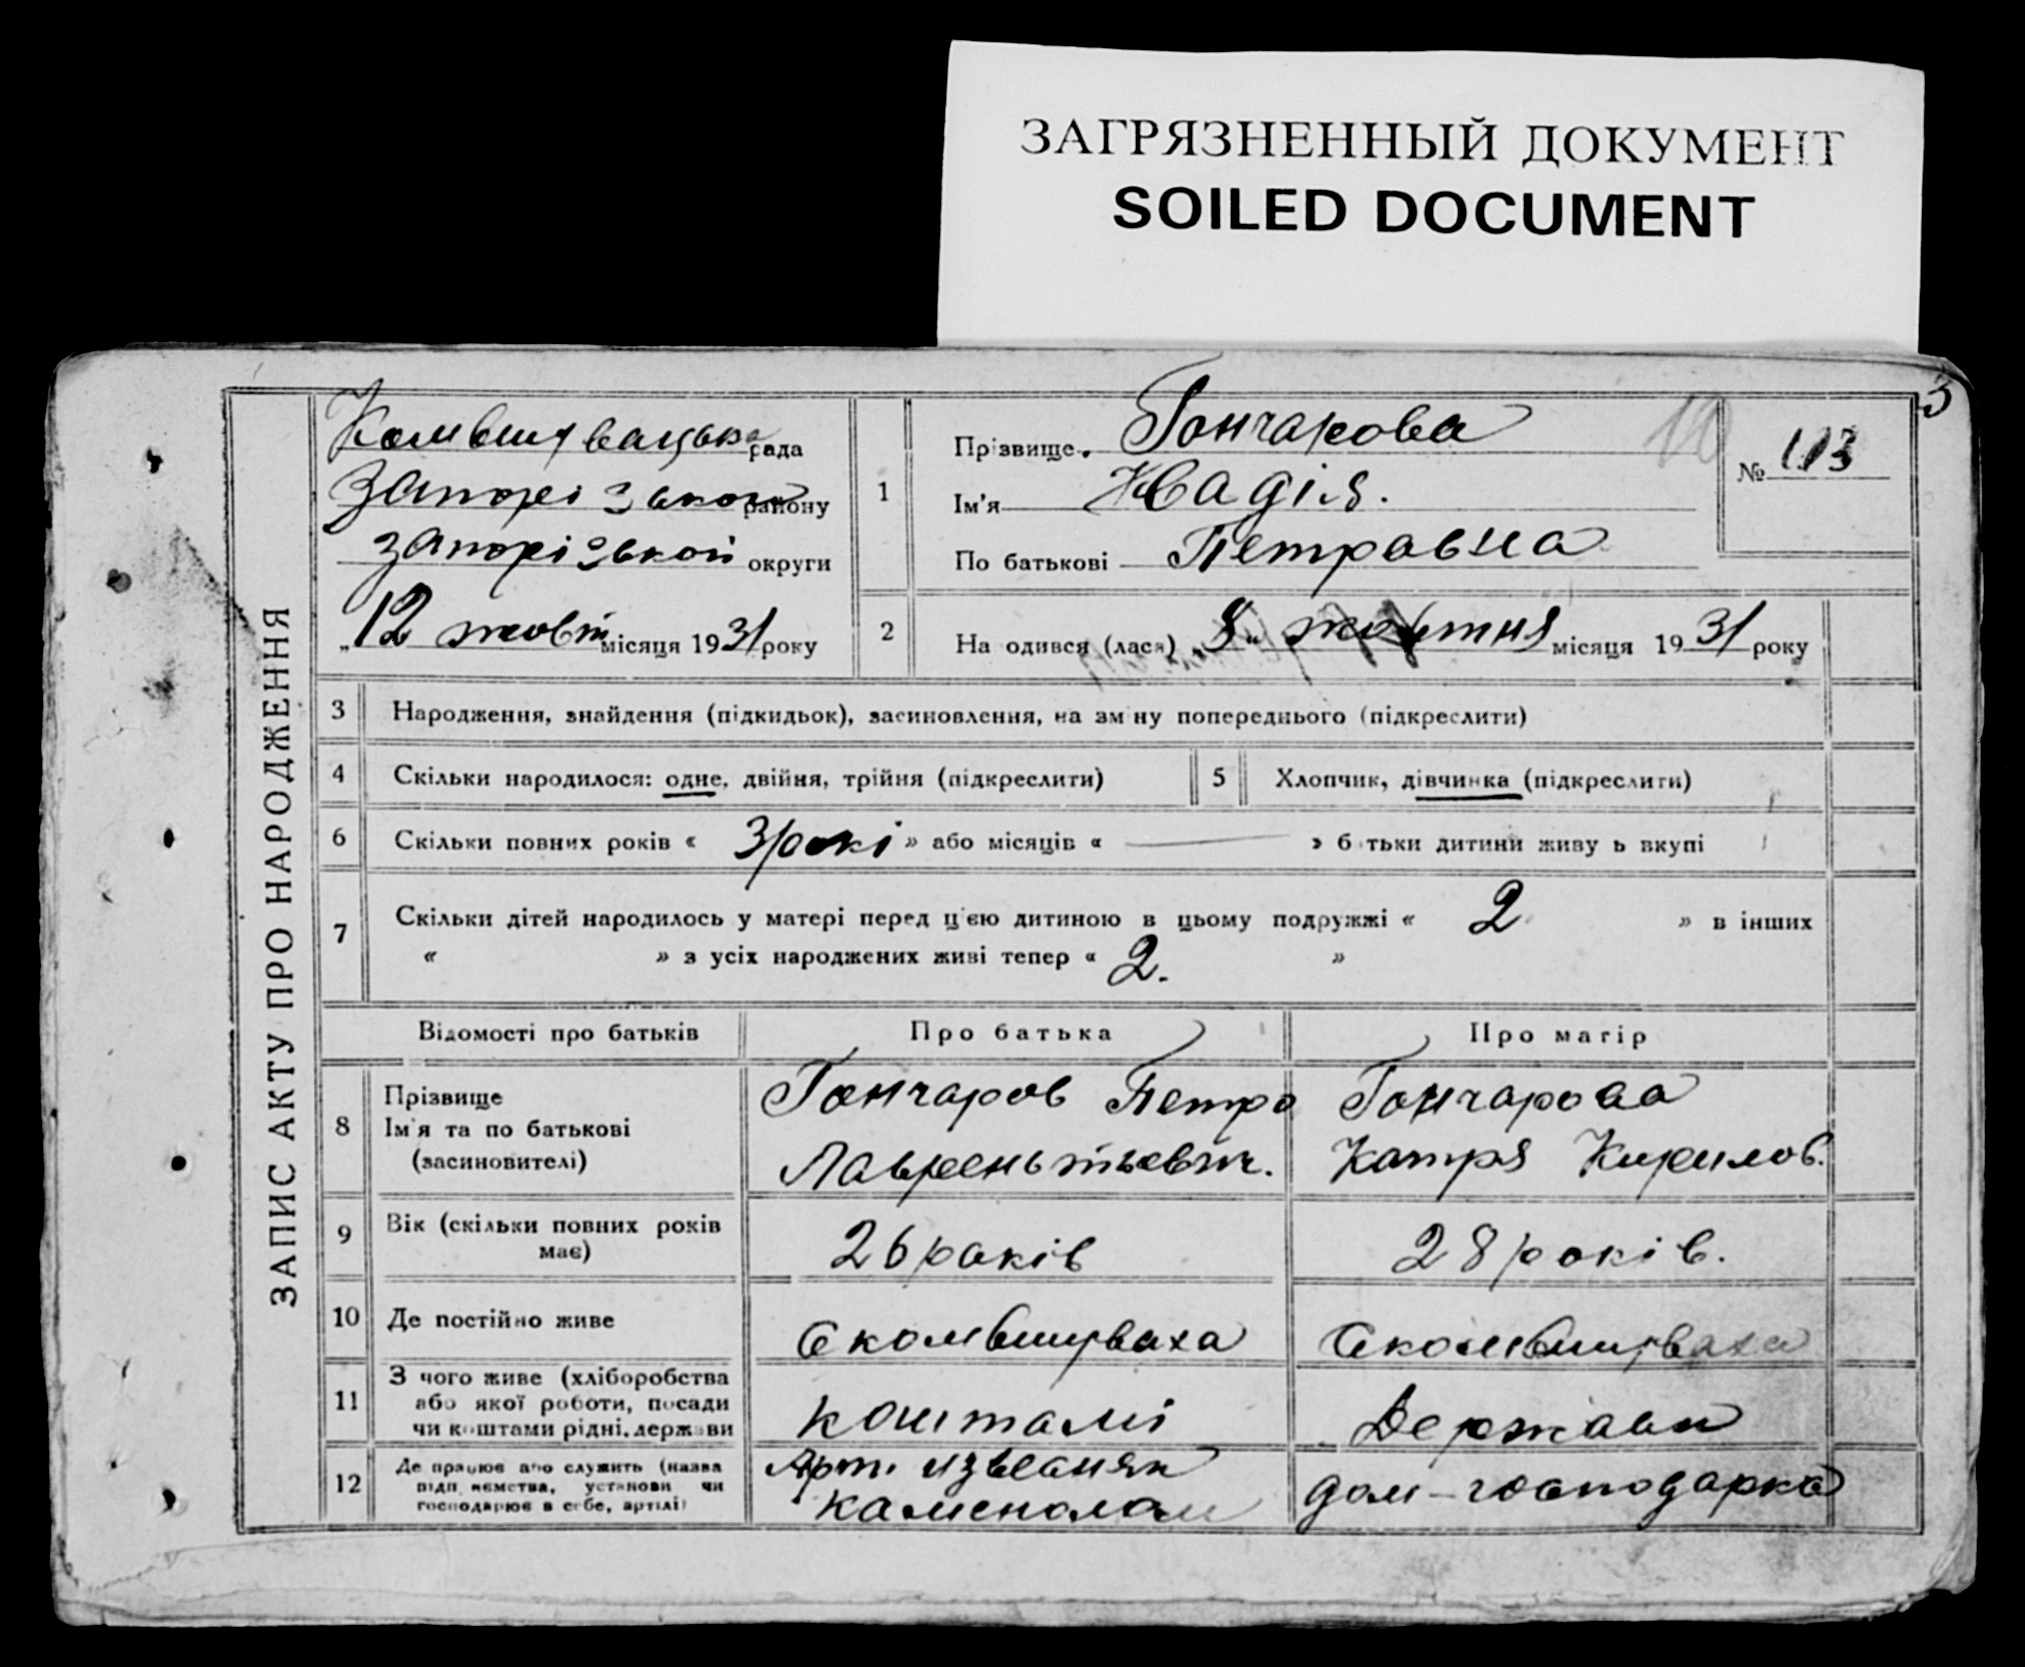 ЗАГРЯЗНЕННЫЙ ДОКУМЕНТ
SOILED DOCUMENT
3
ЗАПИС АКТУ ПРО НАРОДЖЕННЯ
Комвишувацька рада
Запорізького району
Запорізькой округи
„12 жовт місяця 1931 року
1
Прізвище Гончарова
Ім'я Надія.
По батькові Петравна
10
№ 113
2
На одився (лася) „8„ жовтня місяця 1931 року
3 Народження, знайдення (підкидьок), засиновлення, на зм ну попереднього (підкреслити)
4 Скільки народилося: одне, двійня, трійня (підкреслити)
5 Хлопчик, дівчинка (підкреслити)
6 Скільки повних років « 3 рокі » або місяців « — » б тьки дитини живу ь вкупі
7 Скільки дітей народилось у матері перед ц'єю дитиною в цьому подружжі « 2 » в інших
« » з усіх народжених живі тепер « 2. »
Відомості про батьків Про батька Про матір
8 Прізвище
Ім'я та по батькові
(засиновителі)
Гончаров Петро
Лавреньтьевич.
Гончарова
Катря Кирилов.
9 Вік (скільки повних років
має)
26 років
28 років.
10 Де постійно живе
С комвишуваха
С комвишуваха
11 З чого живе (хліборобства
або якої роботи, посади
чи коштами рідні, держави
коштамі
Держави
12 Де працює або служить (назва
підп ємства, установи чи
господарює в себе, артілі)
Арт.
каменолом
дом-господарка